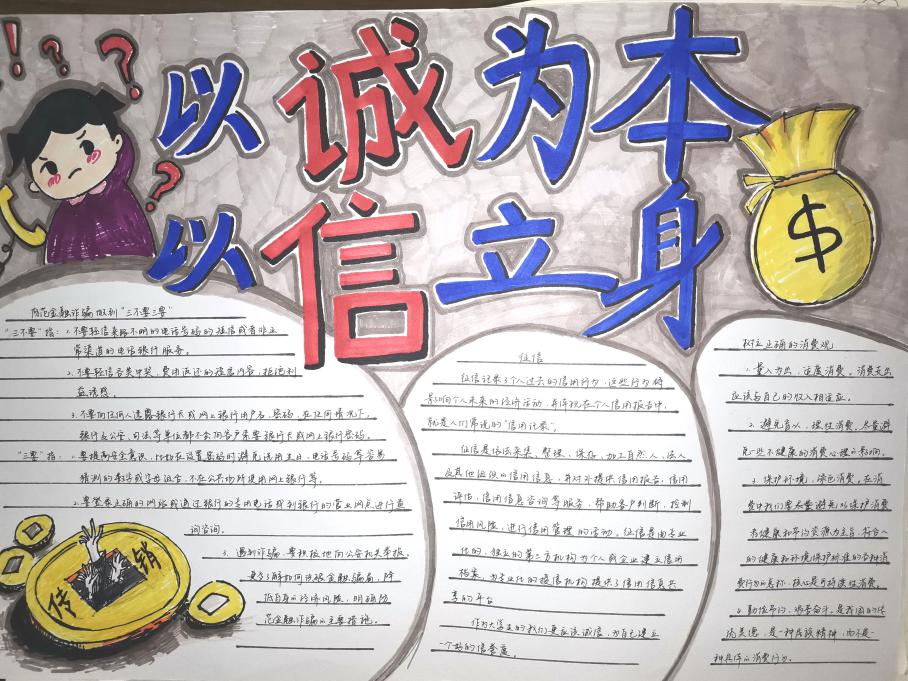 以诚为本
以信立身
防范金融诈骗做到“三不要三要”
“三不要”指：1.不要轻信来路不明的电话号码的短信或者非正
常渠道的电话银行服务。
2.不要轻信各类中奖，费用返还的短信内容，拒绝利
益诱惑。
3.不要向任何人透露银行卡或网上银行用户名，密码，在任何情况下，
银行或公安、司法等单位都不会向客户索要银行卡或网上银行密码。
“三要”指：1.要提高安全意识，比如在设置密码时避免选用生日，电话号码等容易
猜测的数字或字母组合，不在公共场所使用网上银行等。
2.要登录正确的网站或通过银行的专用电话或到银行的营业网点进行查
询咨询。
3.遇到诈骗，要积极地向公安机关举报，
更多了解如何识破金融骗局，降
低自身的经济风险，明确防
范金融诈骗的主要措施。
传销
征信
征信记录了个人过去的信用行为，这些行为将
影响个人未来的经济活动，并体现在个人信用报告中，
就是人们常说的“信用记录”。
征信是依法采集、整理、保存、加工自然人、法人
及其他组织的信用信息，并对外提供信用报告、信用
评估、信用信息咨询等服务，帮助客户判断、控制
信用风险，进行信用管理的活动。征信是由专业
化的、独立的第三方机构为个人或企业建立信用
档案，为专业化的授信机构提供了信用信息共
享的平台
作为大学生的我们更应该诚信，为自己建立
一个好的信誉度。
树立正确的消费观
1.量入为出，适度消费。消费支出
应该与自己的收入相适应。
2.避免盲从，理性消费。尽量避
免一些不健康的消费心理的影响。
3.保护环境，绿色消费。在消
费中我们要尽量避免以保护消费
者健康和节约资源为主旨，符合人
的健康和环境保护标准的各种消
费行为的总称，核心是可持续性消费。
4.勤俭节约、艰苦奋斗。是我国的传
统美德，是一种民族精神，而不是一
种具体的消费行为。
$